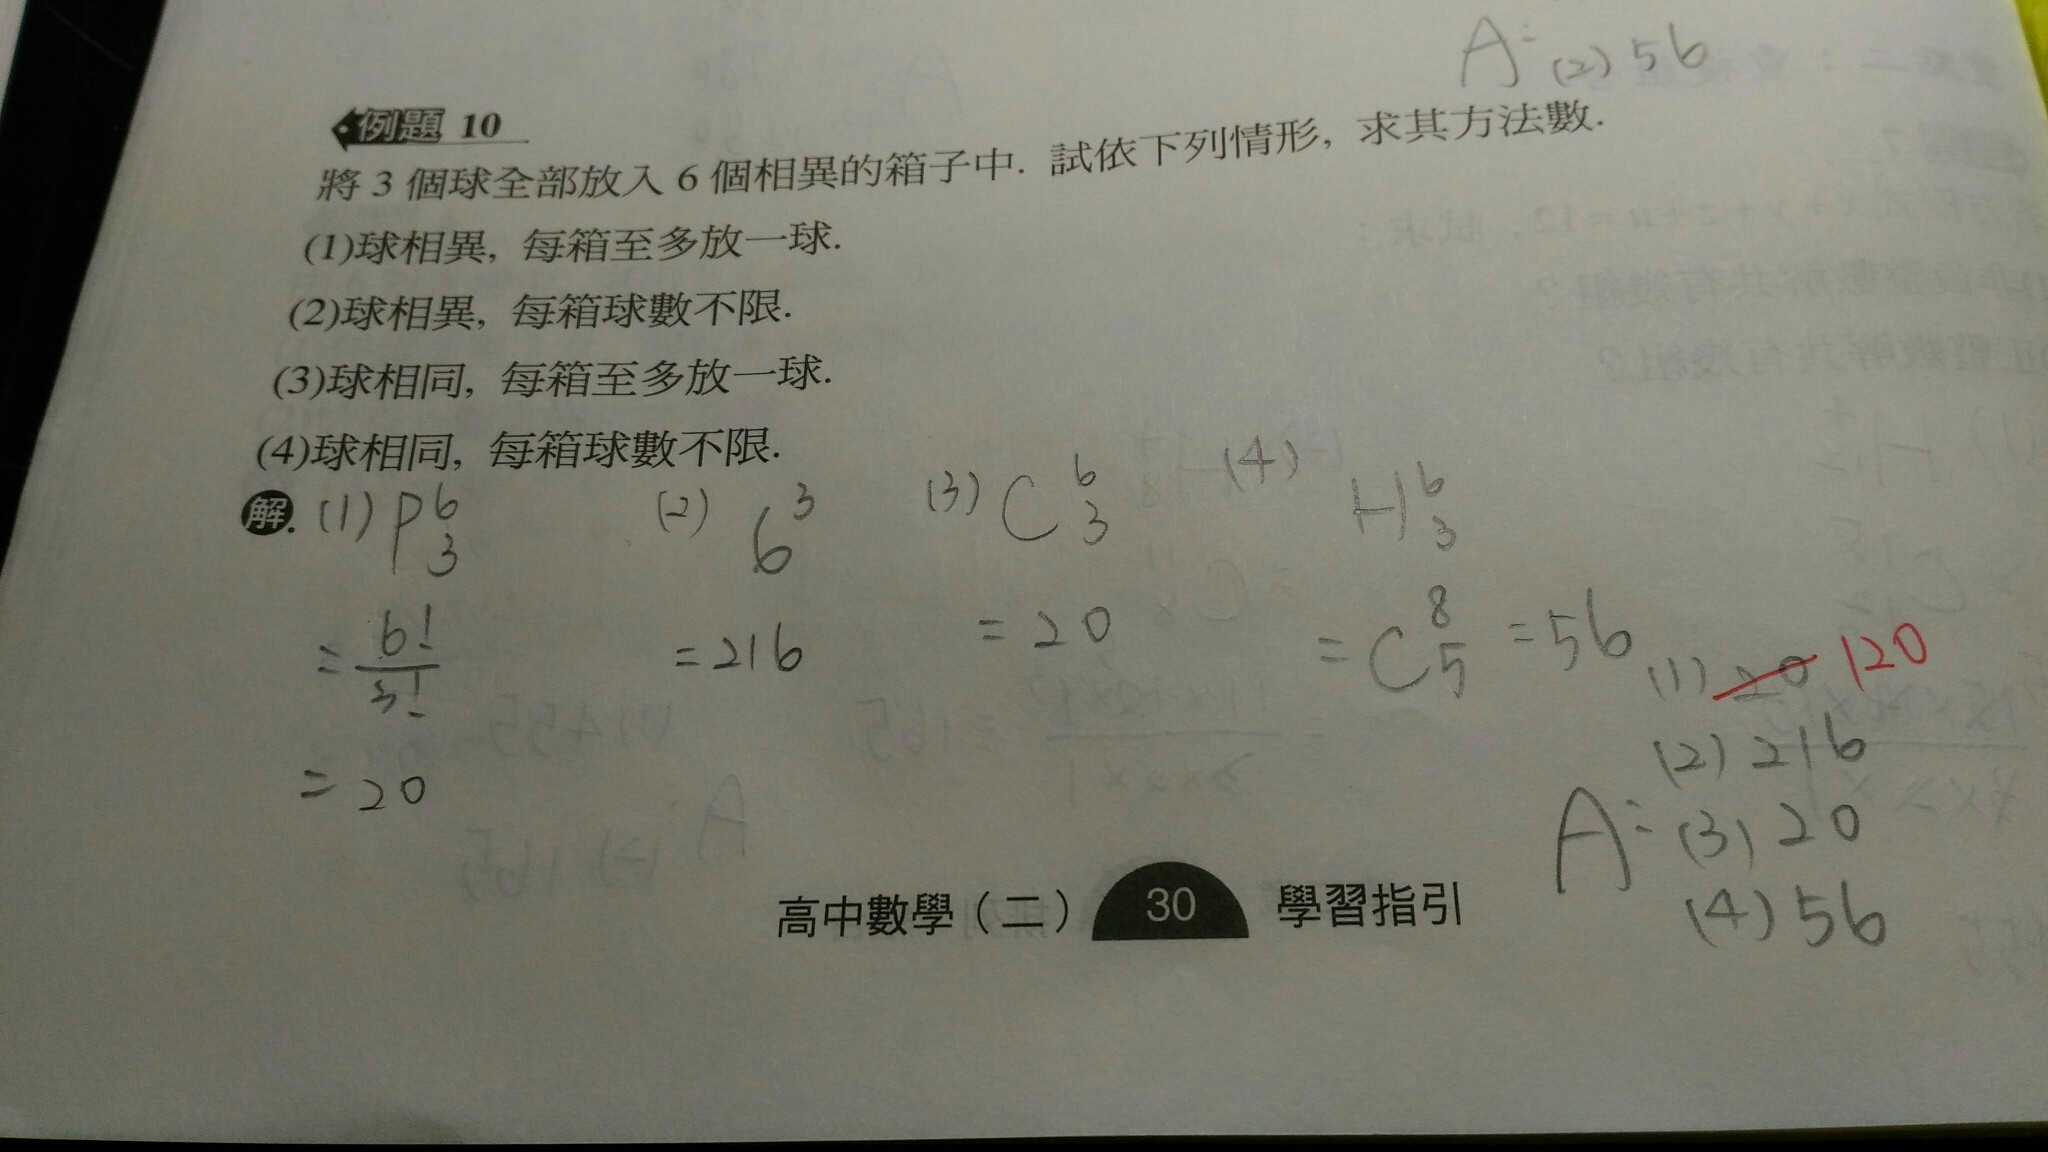 A: (2) 56
例題 10
將 3 個球全部放入 6 個相異的箱子中. 試依下列情形, 求其方法數.
(1)球相異, 每箱至多放一球.
(2)球相異, 每箱球數不限.
(3)球相同, 每箱至多放一球.
(4)球相同, 每箱球數不限.
解. (1) P 6 3 (2) 6³ (3) C 6 3 (4) H 6 3
= 6! / 3! = 216 = 20 = C 8 5 = 56
= 20
A: (1) 20 120
(2) 216
(3) 20
(4) 56
高中數學（二） 30 學習指引